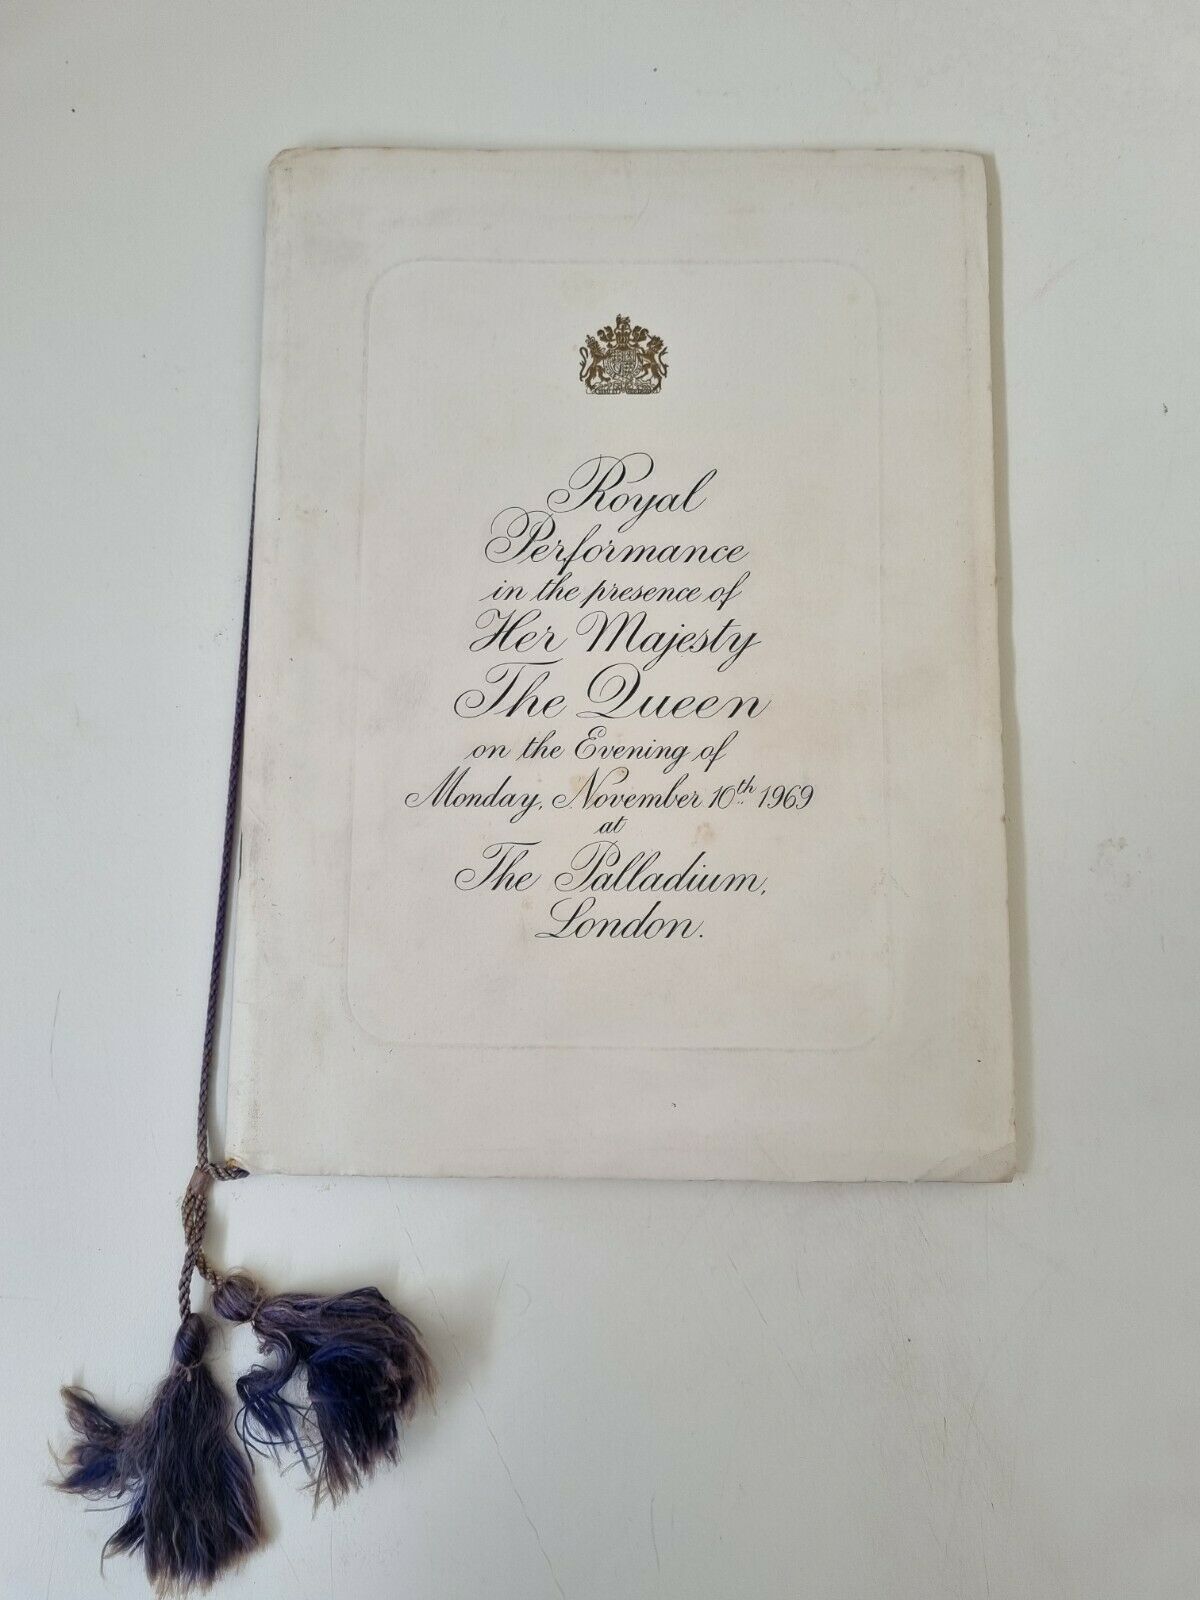 Royal
Performance
in the presence of
Her Majesty
The Queen
on the Evening of
Monday, November 10th 1969
at
The Palladium,
London.